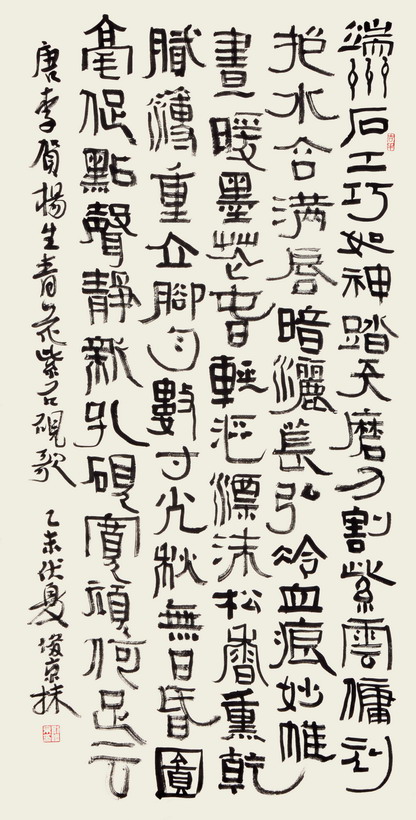 端州石工巧如神踏天磨刀割紫雲傭刓
抱水含滿唇暗灑萇弘冷血痕妙帷
晝暖墨花春輕漚漂沫松麝熏乾
膩薄重立腳匀數寸光秋無日昏圓
毫促點聲靜新孔硯寬頑何足云
唐李賀楊生青花紫石硯歌 乙未伏夏俊京抹